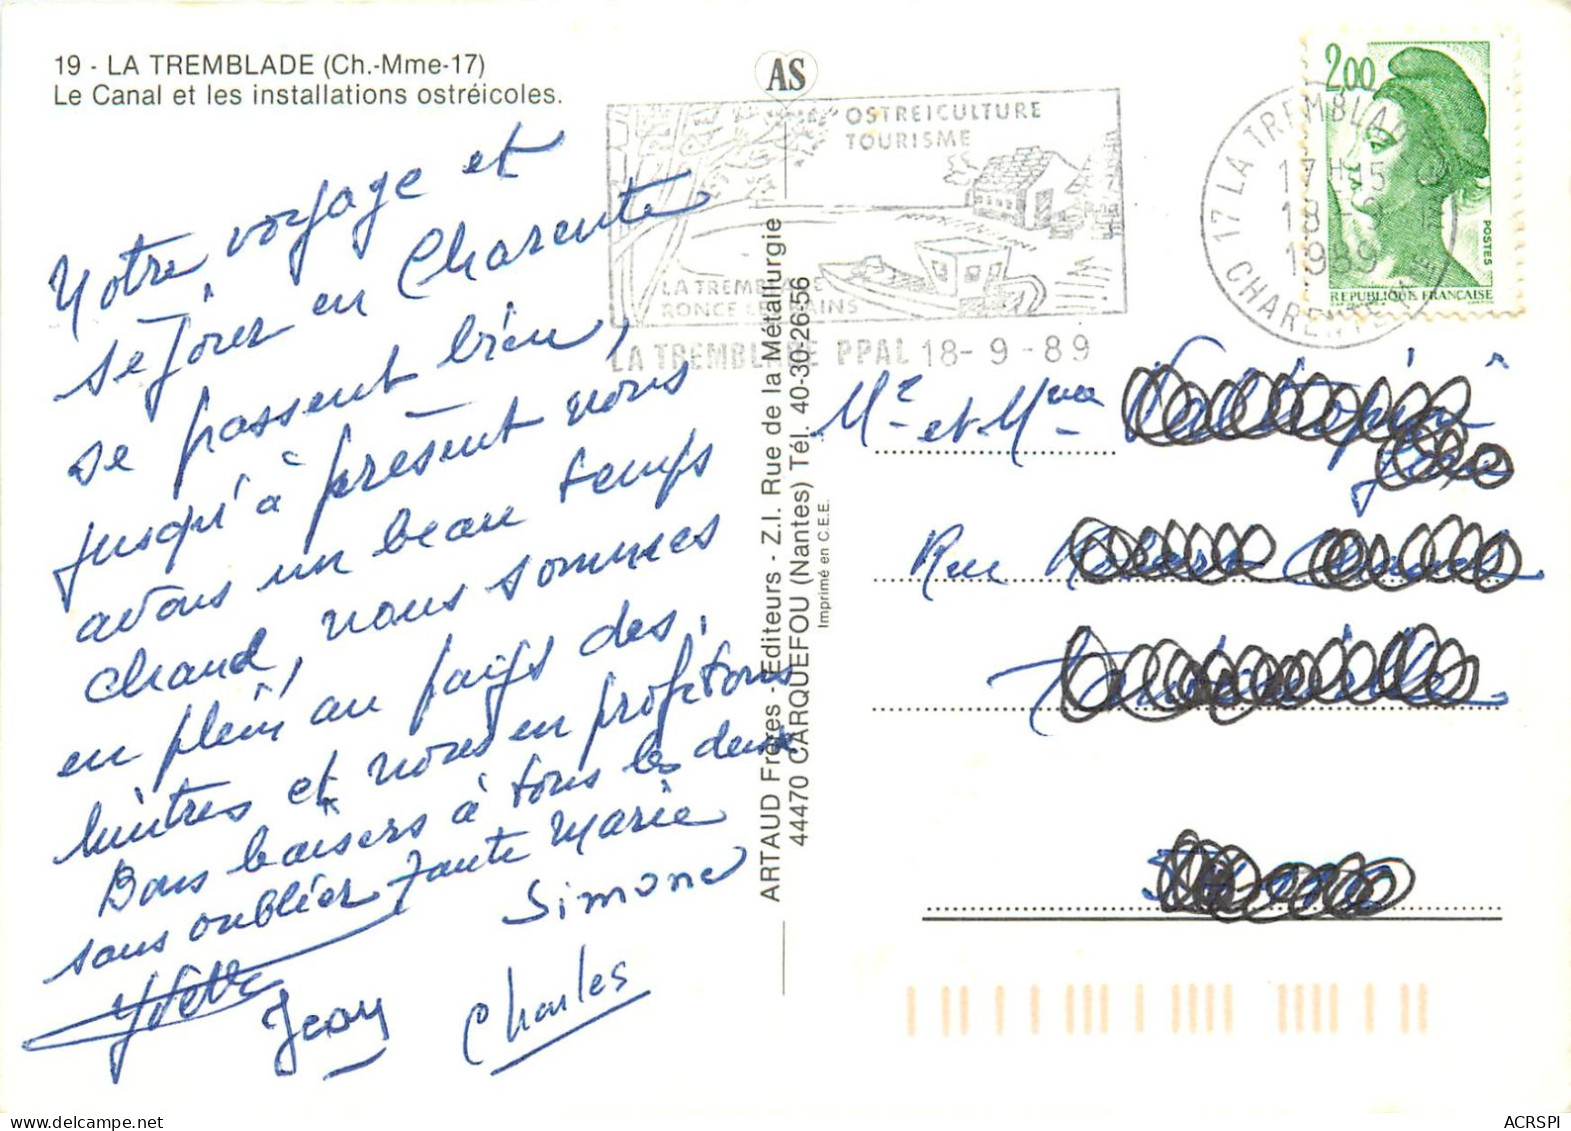 19 - LA TREMBLADE (Ch.-Mme-17)
Le Canal et les installations ostréicoles.
AS
OSTREICULTURE
TOURISME
LA TREMBLADE
RONCE LES BAINS
LA TREMBLADE PPAL 18-9-89
17 LA TREMBLADE
17H15
18-9
1989
CHARENTE MME
2,00
POSTES
REPUBLIQUE FRANÇAISE
Notre voyage et
séjour en Charente
se passent bien,
jusqu'à présent nous
avons un beau temps
chaud, nous sommes
en plein au pays des
huitres et nous en profitons
Bons baisers à tous les deux
sans oublier Tante Marie
Simone
Yvette
Jean
Charles
ARTAUD Frères - Editeurs - Z.I. Rue de la Métallurgie
44470 CARQUEFOU (Nantes) Tél. 40-30-26-56
Imprimé en C.E.E.
Mr et Mme
Rue
ACRSPI